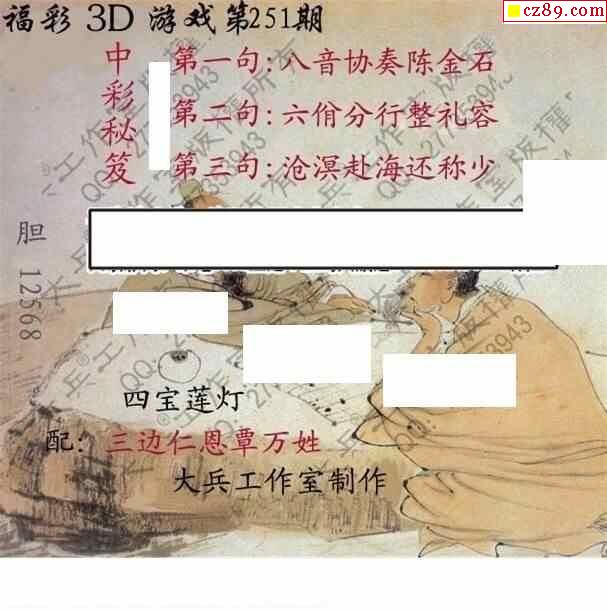 福彩 3D 游戏第251期
cz89.com
中彩秘笈
第一句:八音协奏陈金石
第二句:六佾分行整礼容
第三句:沧溟赴海还称少
胆 12568
四宝莲灯
配: 三边仁恩覃万姓
大兵工作室制作